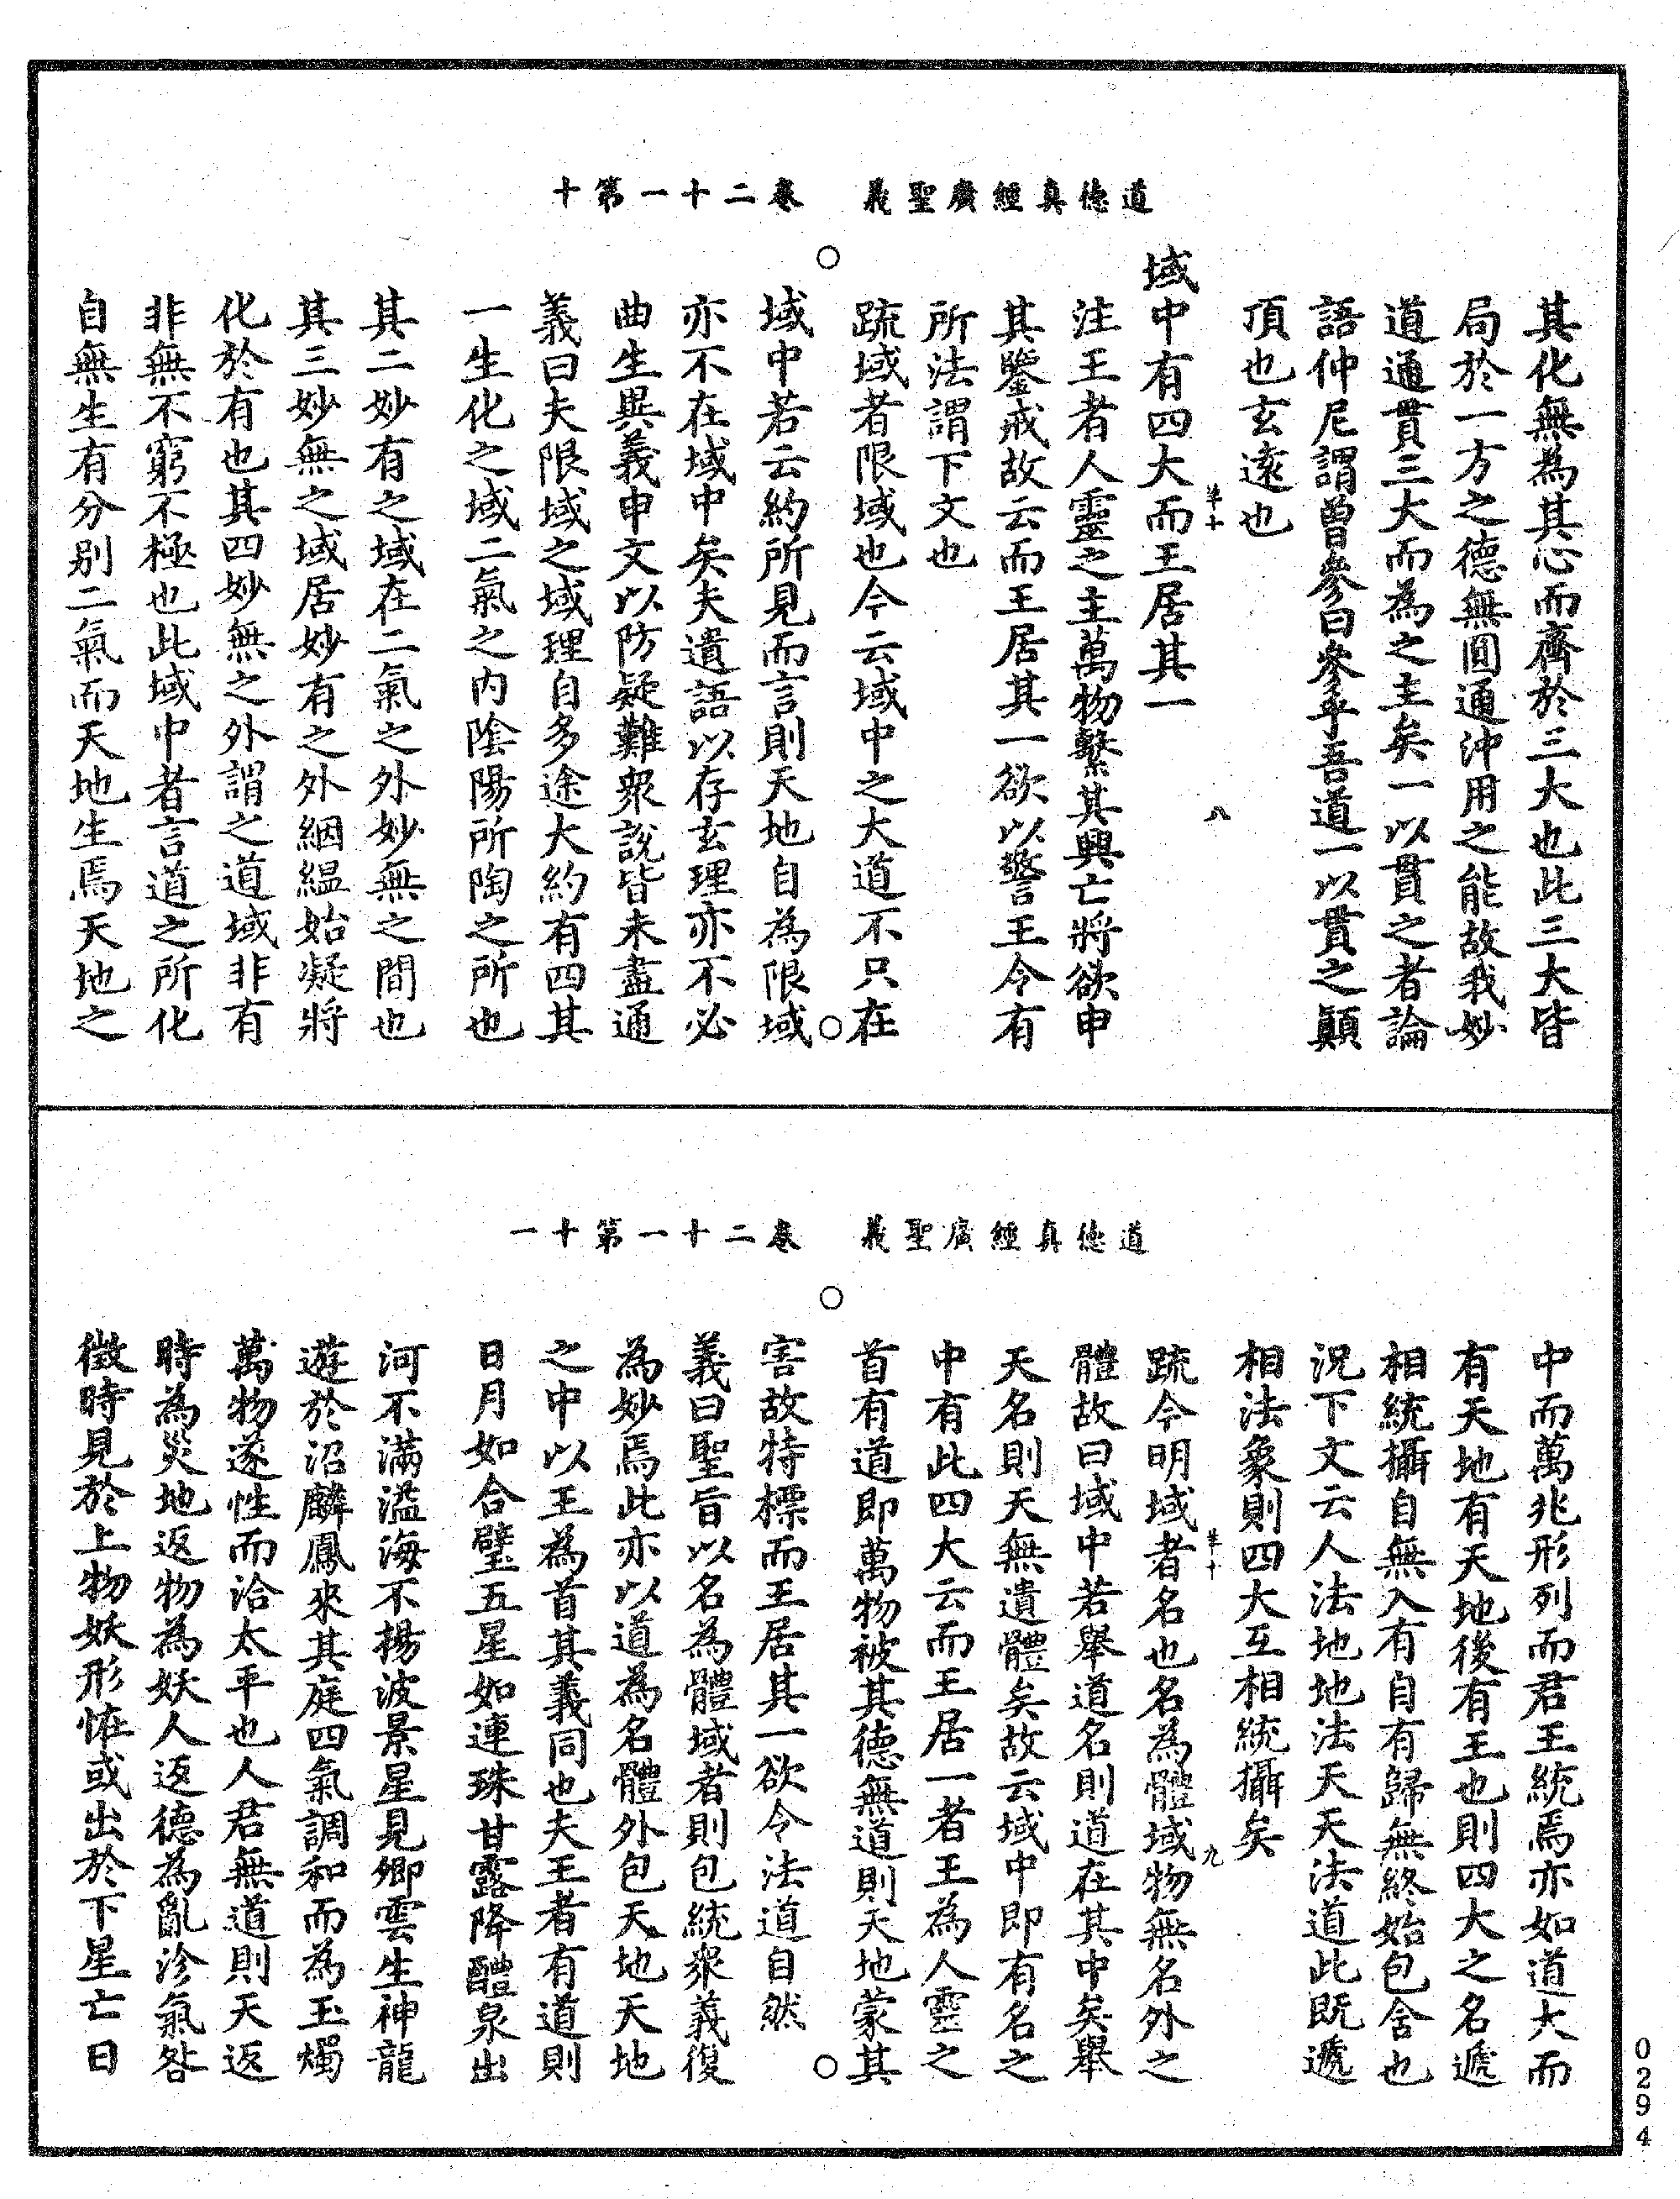 道德真經廣聖義　卷二十一第十
其化無為其心而齊於三大也此三大皆
局於一方之德無圓通沖用之能故我妙
道通貫三大而為之主矣一以貫之者論
語仲尼謂曾參曰參乎吾道一以貫之顛
頂也玄遠也
域中有四大而王居其一
注王者人靈之主萬物繫其興亡將欲申
其鑒戒故云而王居其一欲以警王令有
所法謂下文也
疏域者限域也今云域中之大道不只在
域中若云約所見而言則天地自為限域
亦不在域中矣夫遺語以存玄理亦不必
曲生異義申文以防疑難眾說皆未盡通
義曰夫限域之域理自多途大約有四其
一生化之域二氣之內陰陽所陶之所也
其二妙有之域在二氣之外妙無之間也
其三妙無之域居妙有之外絪縕始凝將
化於有也其四妙無之外謂之道域非有
非無不窮不極也此域中者言道之所化
自無生有分別二氣而天地生焉天地之
八
道德真經廣聖義　卷二十一第十一
中而萬兆形列而君王統焉亦如道大而
有天地有天地後有王也則四大之名遞
相統攝自無入有自有歸無終始包含也
況下文云人法地地法天天法道此既遞
相法象則四大互相統攝矣
疏今明域者名也名為體域物無名外之
體故曰域中若舉道名則道在其中矣舉
天名則天無遺體矣故云域中即有名之
中有此四大云而王居一者王為人靈之
首有道即萬物被其德無道則天地蒙其
害故特標而王居其一欲令法道自然
義曰聖旨以名為體域者則包統眾義復
為妙焉此亦以道為名體外包天地天地
之中以王為首其義同也夫王者有道則
日月如合璧五星如連珠甘露降醴泉出
河不滿溢海不揚波景星見卿雲生神龍
遊於沼麟鳳來其庭四氣調和而為玉燭
萬物遂性而洽太平也人君無道則天返
時為災地返物為妖人返德為亂沴氣咎
徵時見於上物妖形恠或出於下星亡日
九
0294